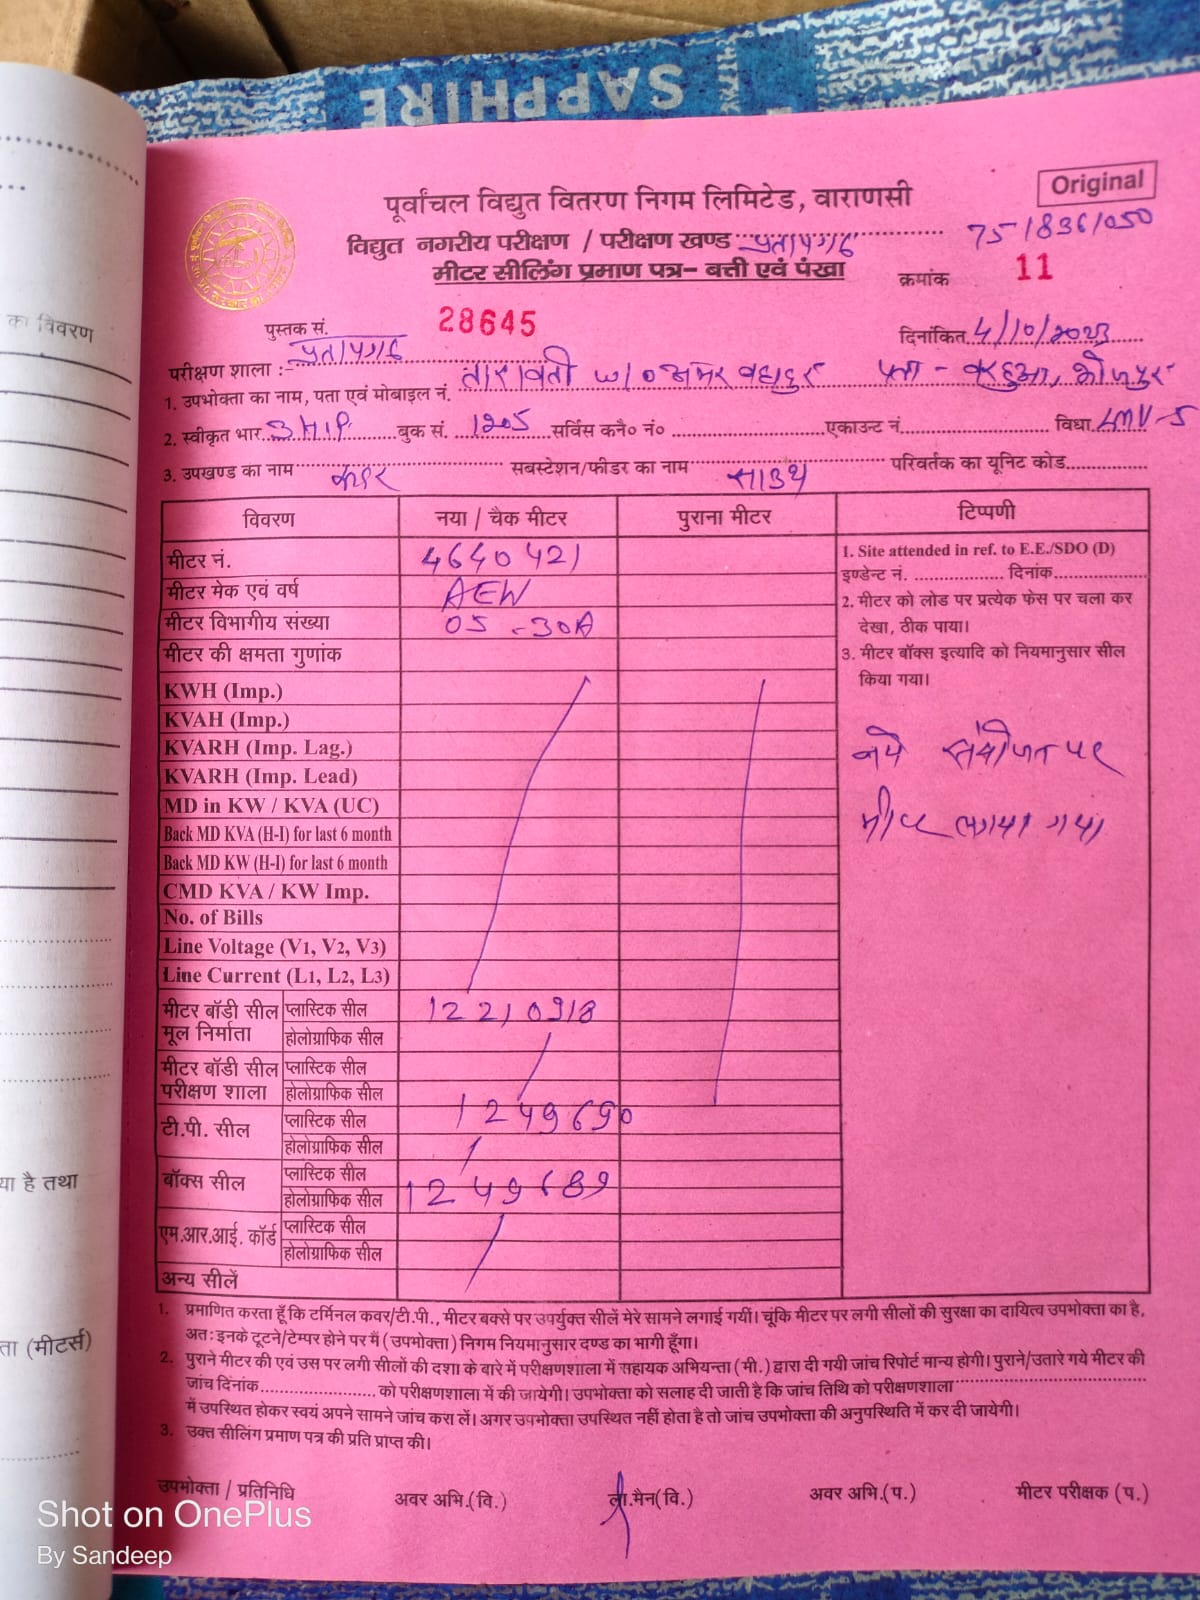 SAPPHIRE
Original
पूर्वांचल विद्युत वितरण निगम लिमिटेड, वाराणसी
75/836/050
विद्युत नगरीय परीक्षण / परीक्षण खण्ड प्रतापगढ़
मीटर सीलिंग प्रमाण पत्र- बत्ती एवं पंखा
क्रमांक 11
पुस्तक सं. 28645
दिनांकित 4/10/2023
परीक्षण शाला :- प्रतापगढ़
1. उपभोक्ता का नाम, पता एवं मोबाइल नं. तारावती w/o अमर बहादुर पता -
2. स्वीकृत भार 3 H.P. बुक सं. 1205 सर्विस कनै० नं० एकाउन्ट नं. विधा LMV-5
3. उपखण्ड का नाम सबस्टेशन/फीडर का नाम साउथ परिवर्तक का यूनिट कोड
विवरण नया / चैक मीटर पुराना मीटर टिप्पणी
मीटर नं. 4640421
मीटर मेक एवं वर्ष AEW
मीटर विभागीय संख्या 05-30A
मीटर की क्षमता गुणांक
KWH (Imp.)
KVAH (Imp.)
KVARH (Imp. Lag.)
KVARH (Imp. Lead)
MD in KW / KVA (UC)
Back MD KVA (H-I) for last 6 month
Back MD KW (H-I) for last 6 month
CMD KVA / KW Imp.
No. of Bills
Line Voltage (V1, V2, V3)
Line Current (L1, L2, L3)
मीटर बॉडी सील मूल निर्माता प्लास्टिक सील 12210918
होलोग्राफिक सील
मीटर बॉडी सील परीक्षण शाला प्लास्टिक सील
होलोग्राफिक सील
टी.पी. सील प्लास्टिक सील 1249690
होलोग्राफिक सील
बॉक्स सील प्लास्टिक सील 1249689
होलोग्राफिक सील
एम.आर.आई. कॉर्ड प्लास्टिक सील
होलोग्राफिक सील
अन्य सीलें
1. Site attended in ref. to E.E./SDO (D)
इण्डेन्ट नं. दिनांक
2. मीटर को लोड पर प्रत्येक फेस पर चला कर
देखा, ठीक पाया।
3. मीटर बॉक्स इत्यादि को नियमानुसार सील
किया गया।
नये संयोजन पर
मीटर लगाया गया
1. प्रमाणित करता हूँ कि टर्मिनल कवर/टी.पी., मीटर बक्से पर उपर्युक्त सीलें मेरे सामने लगाई गयीं। चूंकि मीटर पर लगी सीलों की सुरक्षा का दायित्व उपभोक्ता का है,
अतः इनके टूटने/टेम्पर होने पर मैं (उपभोक्ता) निगम नियमानुसार दण्ड का भागी हूँगा।
2. पुराने मीटर की एवं उस पर लगी सीलों की दशा के बारे में परीक्षणशाला में सहायक अभियन्ता (मी.) द्वारा दी गयी जांच रिपोर्ट मान्य होगी। पुराने/उतारे गये मीटर की
जांच दिनांक को परीक्षणशाला में की जायेगी। उपभोक्ता को सलाह दी जाती है कि जांच तिथि को परीक्षणशाला
में उपस्थित होकर स्वयं अपने सामने जांच करा लें। अगर उपभोक्ता उपस्थित नहीं होता है तो जांच उपभोक्ता की अनुपस्थिति में कर दी जायेगी।
3. उक्त सीलिंग प्रमाण पत्र की प्रति प्राप्त की।
उपभोक्ता / प्रतिनिधि अवर अभि.(वि.) ला.मैन(वि.) अवर अभि.(प.) मीटर परीक्षक (प.)
का विवरण
या है तथा
ता (मीटर्स)
Shot on OnePlus
By Sandeep